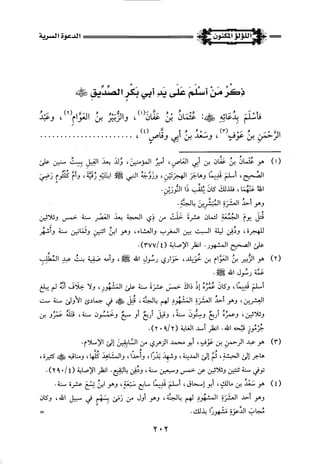 اللؤلؤ المكنون
الدعوة السرية
ذكر من أسلم على يد أبي بكر الصديق ﷺ
فأسلم بدعائه: عثمان بن عفان(١)، والزبير بن العوام(٢)، وعبد
الرحمن بن عوف(٣)، وسعد بن أبي وقاص(٤)، .....................
(١) هو عثمان بن عفان بن أبي العاص، أمير المؤمنين، ولد بعد الفيل بست سنين على
الصحيح، أسلم قديما وهاجر الهجرتين، وزوجه النبي ﷺ ابنتيه رقية، وأم كلثوم رضي
الله عنهما، فلذلك كان يلقب ذا النورين.
وهو أحد العشرة المبشرين بالجنة.
قتل يوم الجمعة لثمان عشرة خلت من ذي الحجة بعد العصر سنة خمس وثلاثين
للهجرة، ودفن ليلة السبت بين المغرب والعشاء، وهو ابن اثنين وثمانين سنة وأشهر
على الصحيح المشهور. انظر الإصابة (٣٧٧/٤).
(٢) هو الزبير بن العوام بن خويلد، حواري رسول الله ﷺ، وأمه صفية بنت عبد المطلب
عمة رسول الله ﷺ.
أسلم قديما، وكان عمره إذ ذاك خمس عشرة سنة على المشهور، ولا خلاف أنه لم يبلغ
العشرين، وهو أحد العشرة المشهود لهم بالجنة، قتل في جمادى الأولى سنة ست
وثلاثين، وعمره أربع وستون سنة، وقيل أربع أو سبع وخمسون سنة، قتله عمرو بن
جرموز قبحه الله. انظر أسد الغابة (٢٠٩/٢).
(٣) هو عبد الرحمن بن عوف، أبو محمد الزهري من السابقين إلى الإسلام.
هاجر إلى الحبشة، ثم إلى المدينة، وشهد بدرا، وأحدا، والمشاهد كلها، ومناقبه كثيرة،
توفي سنة ثنتين وثلاثين عن خمس وسبعين سنة، ودفن بالبقيع. انظر الإصابة (٢٩٠/٤).
(٤) هو سعد بن مالك، أبو إسحاق، أسلم قديما سابع سبعة، وهو ابن تسع عشرة سنة.
وهو أحد العشرة المشهود لهم بالجنة، وهو أول من رمى بسهم في سبيل الله، وكان
مجاب الدعوة مشهورا بذلك. =
٢٠٢